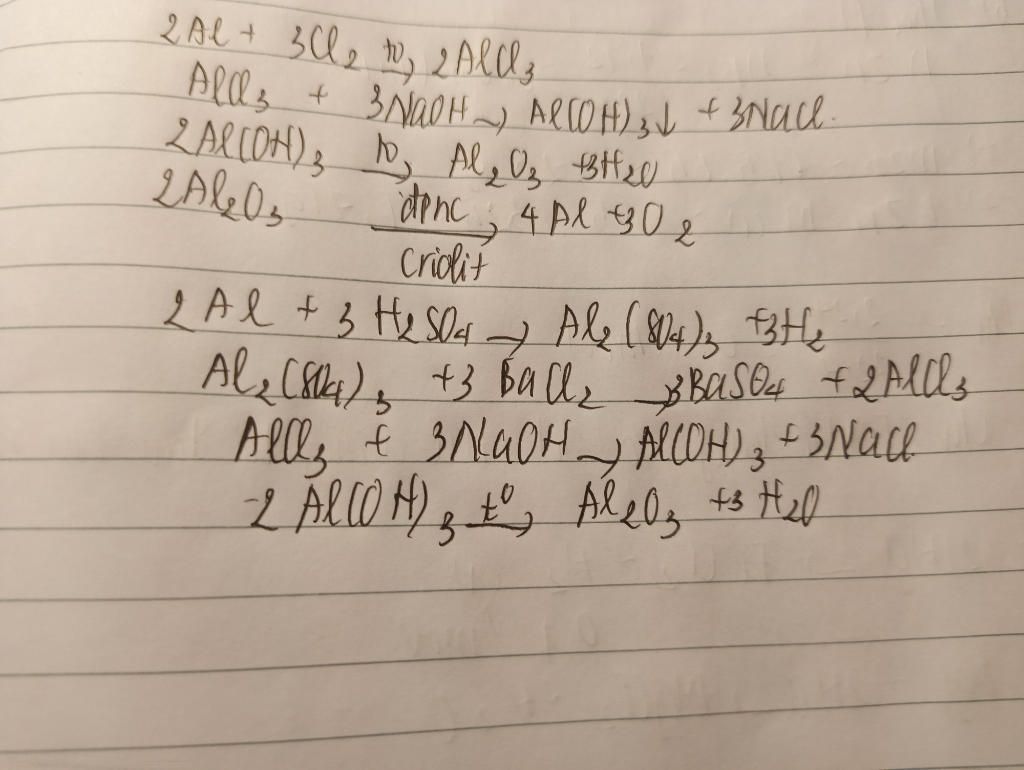 2Al + 3Cl₂ t⁰→ 2AlCl₃
AlCl₃ + 3NaOH → Al(OH)₃↓ + 3NaCl.
2Al(OH)₃ t⁰→ Al₂O₃ + 3H₂O
2Al₂O₃ đpnc→ 4Al + 3O₂
criolit
2Al + 3H₂SO₄ → Al₂(SO₄)₃ + 3H₂
Al₂(SO₄)₃ + 3BaCl₂ → 3BaSO₄ + 2AlCl₃
AlCl₃ + 3NaOH → Al(OH)₃ + 3NaCl
2Al(OH)₃ t⁰→ Al₂O₃ + 3H₂O